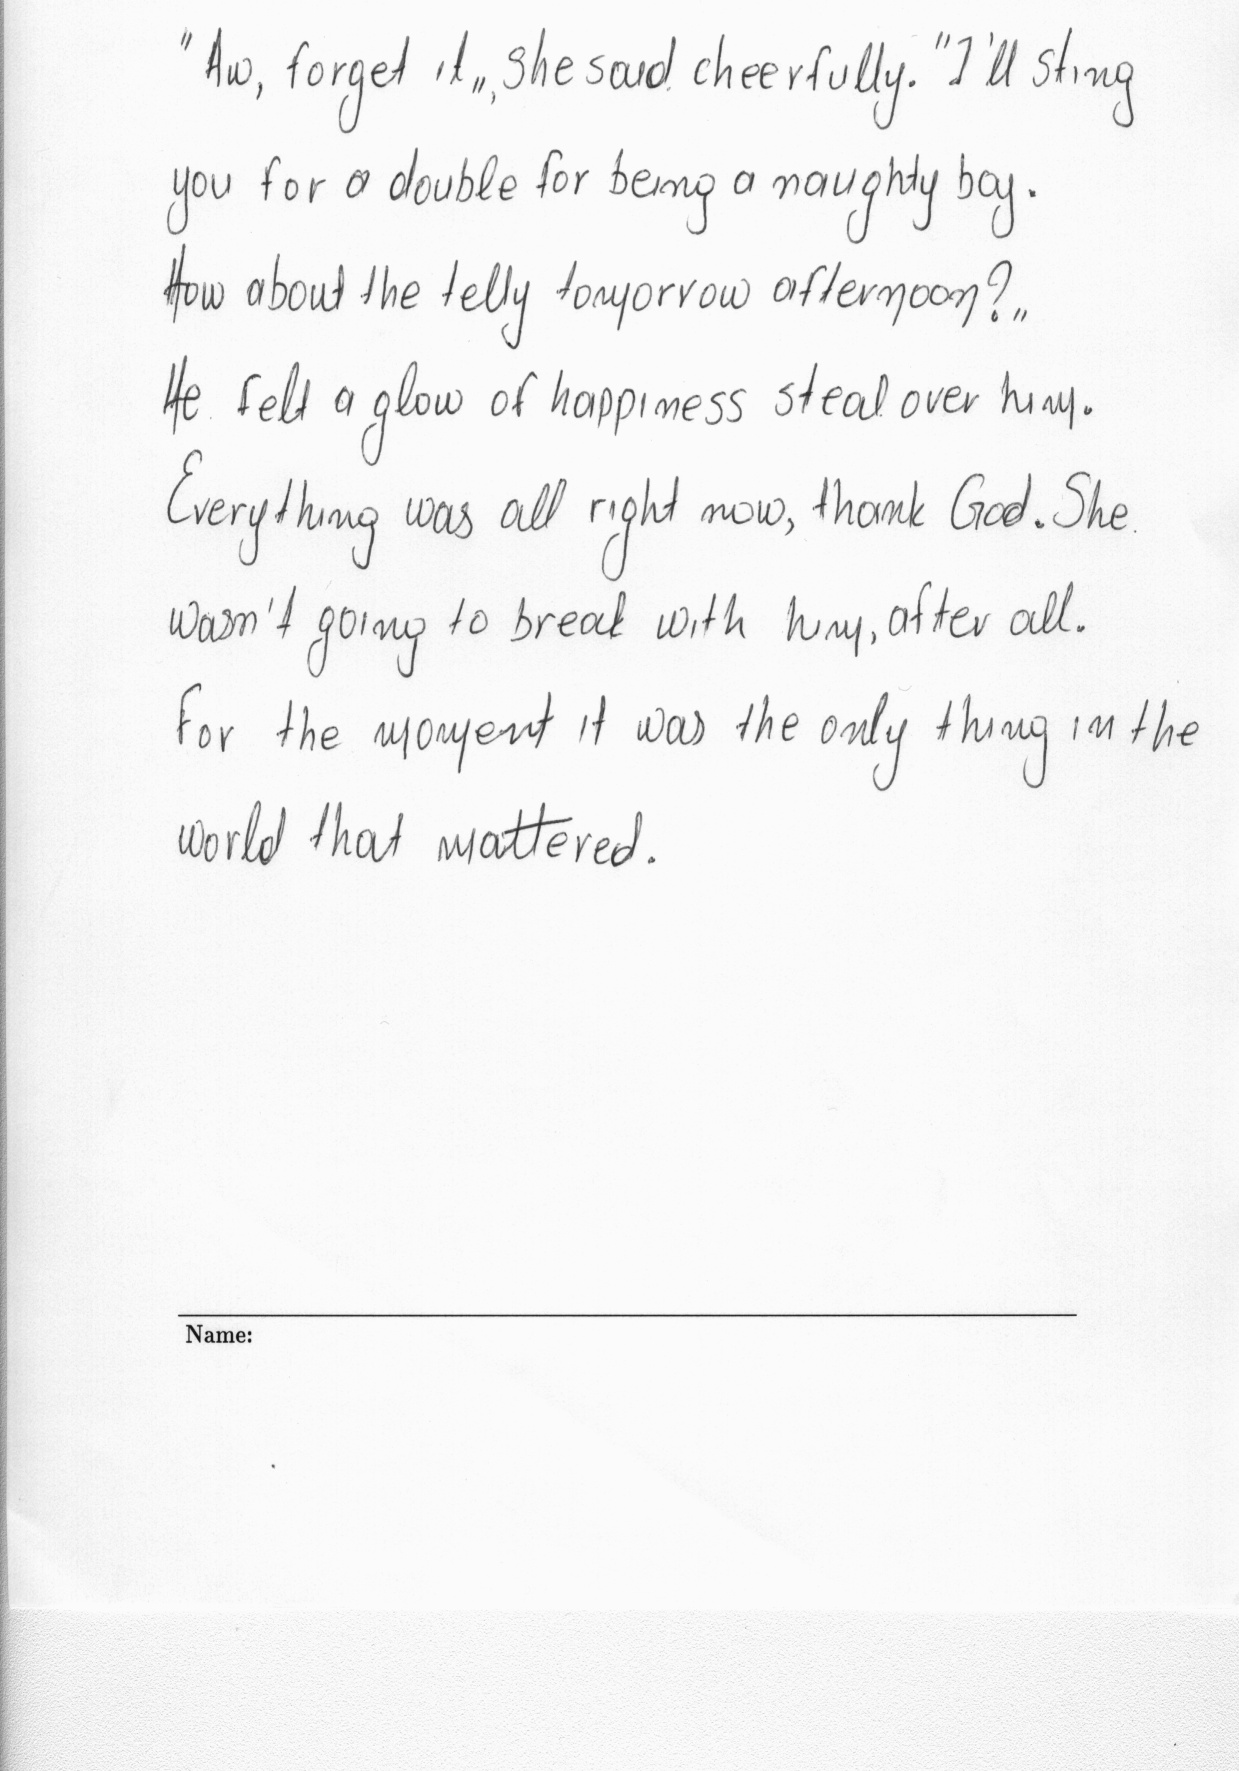 "Aw, forget it„, she said cheerfully. "I'll sting
you for a double for being a naughty boy.
How about the telly tomorrow afternoon?„
He felt a glow of happiness steal over him.
Everything was all right now, thank God. She
wasn't going to break with him, after all.
For the moment it was the only thing in the
world that mattered.
Name: